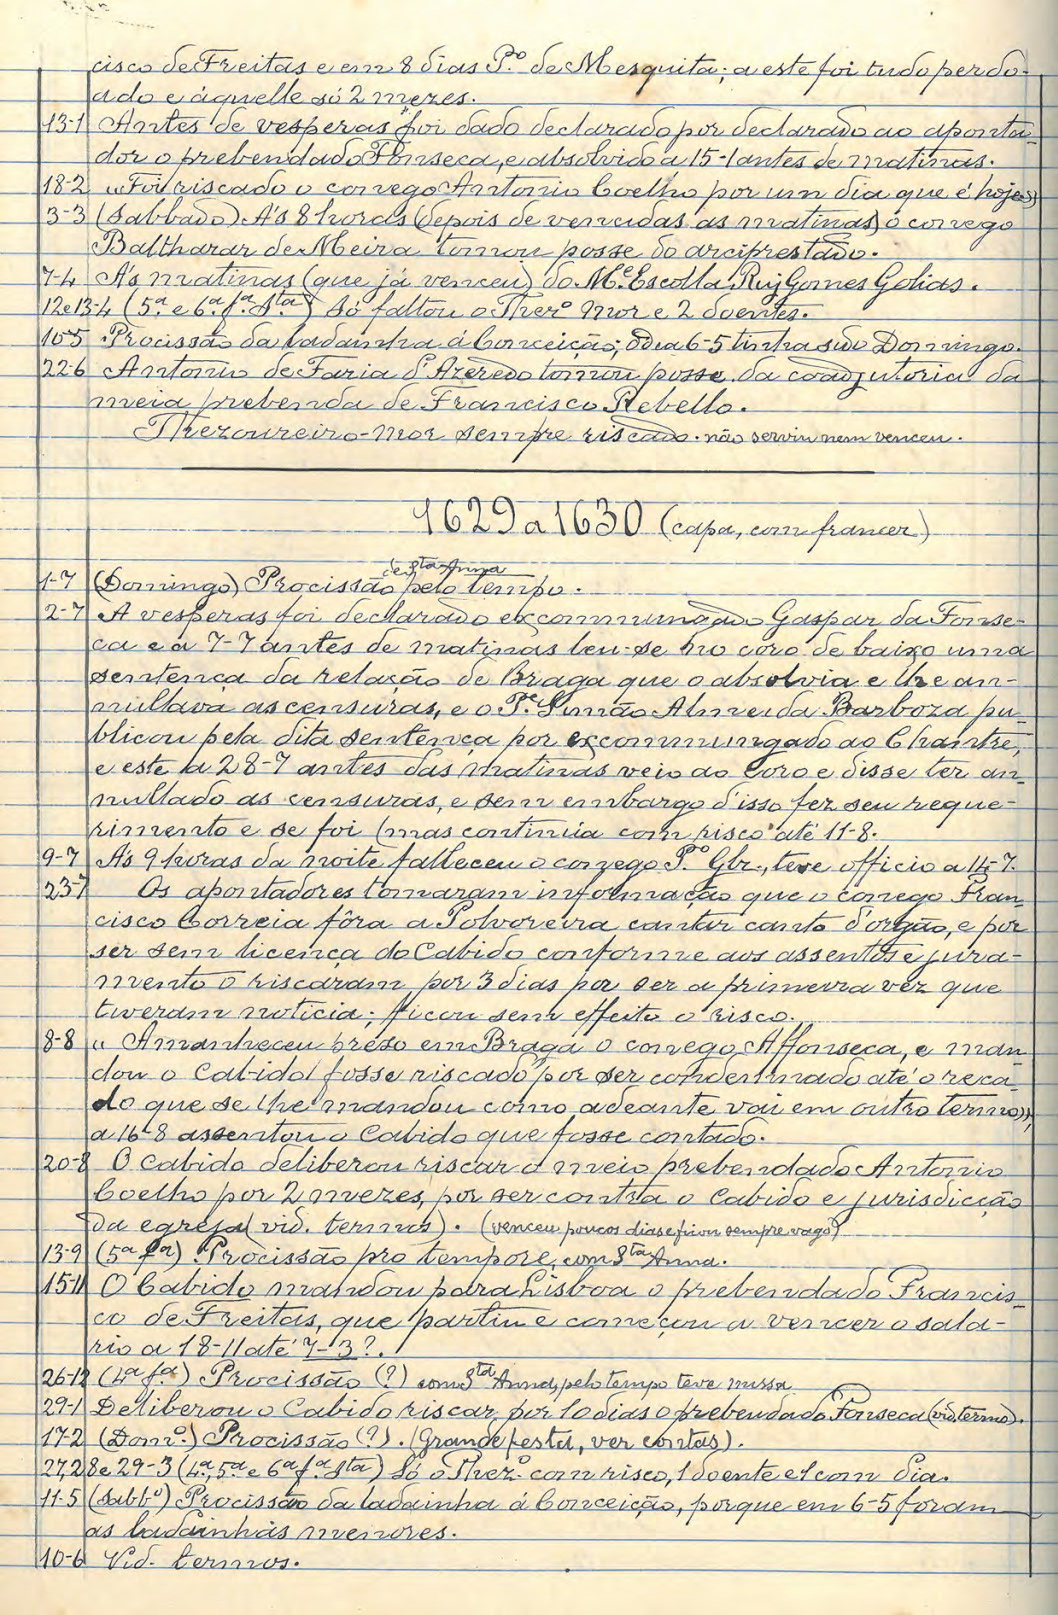 cisco de Freitas e em 8 dias P.º de Mesquita; a este foi tudo perdo-
ado e áquelle só 2 mezes.
13-1 Antes de vesperas foi dado declarado por declarado ao aponta-
dor o prebendado Fonseca, e absolvido a 15-1 antes de matinas.
18-2 «Foi riscado o conego Antonio Coelho por um dia que é hoje»
3-3 (Sabbado) A's 8 horas (depois de vencidas as matinas) o conego
Balthazar de Meira tomou posse do arciprestado.
7-4 A's matinas (que já venceu) do M.e Escolla Ruy Gomes Golias.
12 e 13-4 (5.ª e 6.ª f.ª Sta) Só faltou o Thez.º Mor e 2 doentes.
10-5 Procissão da ladainha á Conceição; o dia 6-5 tinha sido Domingo.
22-6 Antonio de Faria d'Azeredo tomou posse da coadjutoria da
meia prebenda de Francisco Rebello.
Thezoureiro-mor sempre riscado. não serviu nem venceu.
1629 a 1630 (capa, com francez)
de Sta Anna
1-7 (Domingo) Procissão pelo tempo.
2-7 A vesperas foi declarado excommungado Gaspar da Fonse-
ca e a 7-7 antes de matinas leu-se no coro de baixo uma
sentença da relação de Braga que o absolvia e lhe an-
nullava as censuras, e o P.e Simão Almeida Barboza pu-
blicou pela dita sentença por excommungado ao Chantre,
e este a 28-7 antes das matinas veio ao coro e disse ter an-
nullado as censuras, e sem embargo d'isso fez seu reque-
rimento e se foi (mas continúa com risco até 11-8.
9-7 A's 9 horas da noite falleceu o conego P.º Glz., teve officio a 14-7.
23-7 Os apontadores tomaram informação que o conego Fran-
cisco Correia fôra a Polvoreira cantar canto d'orgão, e por
ser sem licença do Cabido conforme aos assentos e jura-
mento o riscaram por 3 dias por ser a primeira vez que
tiveram noticia; ficou sem effeito o risco.
8-8 «Amanheceu prezo em Braga o conego Affonseca, e man-
dou o Cabido fosse riscado por ser condemnado até o reca-
do que se lhe mandou como adeante vai em outro termo»,
a 16-8 assentou o Cabido que fosse contado.
20-8 O Cabido deliberou riscar o meio prebendado Antonio
Coelho por 2 mezes, por ser contra o Cabido e jurisdicção
da egreja (vid. termos). (venceu poucos dias e ficou sempre vago)
13-9 (5ª fª) Procissão pro tempore, com Sta Anna.
15-11 O Cabido mandou para Lisboa o prebendado Francis-
co de Freitas, que partiu e começou a vencer o sala-
rio a 18-11 até 7-3?.
26-12 (4ª fª) Procissão (?) com Sta Anna, pelo tempo teve missa
29-1 Deliberou o Cabido riscar por 10 dias o prebendado Fonseca (vid termo).
17-2 (Dom.º) Procissão (?). (Grande festa, ver contas).
27, 28 e 29-3 (4ª, 5ª e 6ª fª Sta) Só o Thez.º com risco, 1 doente e 1 com dia.
11-5 (Sabb.º) Procissão da ladainha á Conceição, porque em 6-5 foram
as ladainhas menores.
10-6 Vid. termos.